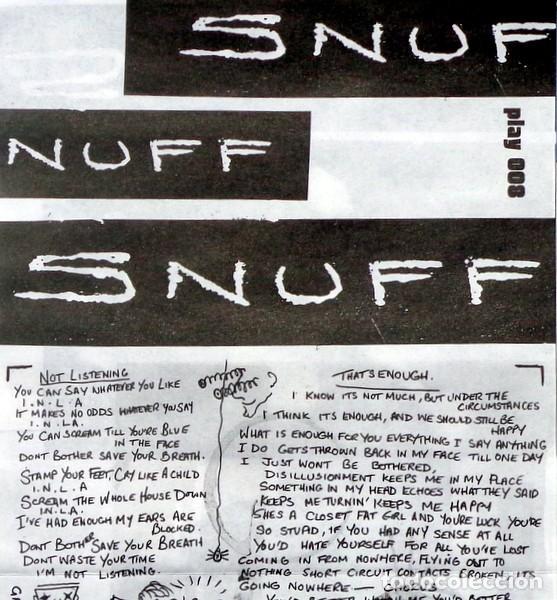 SNUF
play 008
NUFF
SNUFF
NOT LISTENING
YOU CAN SAY WHATEVER YOU LIKE
I.N.L.A
IT MAKES NO ODDS WHATEVER YOU SAY
I.N.L.A.
YOU CAN SCREAM TILL YOU'RE BLUE
IN THE FACE
DONT BOTHER SAVE YOUR BREATH.
STAMP YOUR FEET, CRY LIKE A CHILD
I.N.L.A
SCREAM THE WHOLE HOUSE DOWN
I.N.L.A.
I'VE HAD ENOUGH MY EARS ARE
BLOCKED.
DONT BOTHER SAVE YOUR BREATH
DONT WASTE YOUR TIME
I'M NOT LISTENING.
THATS ENOUGH.
I KNOW ITS NOT MUCH, BUT UNDER THE
CIRCUMSTANCES
I THINK ITS ENOUGH, AND WE SHOULD STILL BE
HAPPY
WHAT IS ENOUGH FOR YOU EVERYTHING I SAY ANYTHING
I DO GETS THROWN BACK IN MY FACE TILL ONE DAY
I JUST WONT BE BOTHERED,
DISILLUSIONMENT KEEPS ME IN MY PLACE
SOMETHING IN MY HEAD ECHOES WHAT THEY SAID
KEEPS ME TURNIN' KEEPS ME HAPPY
SHES A CLOSET FAT GIRL AND YOU'RE LUCK YOU'RE
SO STUPID, IF YOU HAD ANY SENSE AT ALL
YOU'D HATE YOURSELF FOR ALL YOU'VE LOST
COMING IN FROM NOWHERE, FLYING OUT TO
NOTHING SHORT CIRCUIT CONTACTS BROKEN ITS
GOING NOWHERE — CHORUS
todocoleccion